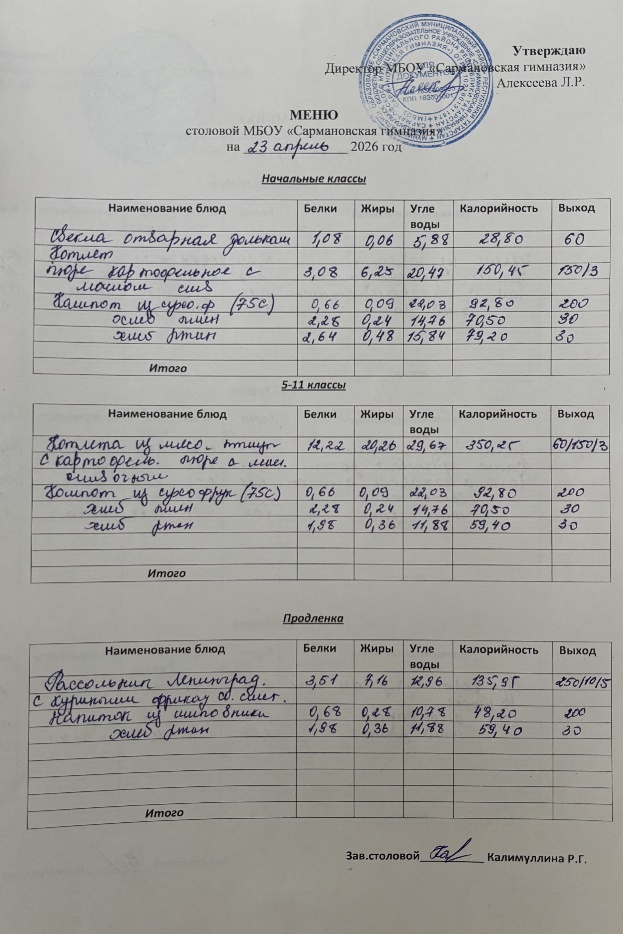 Утверждаю
Директор МБОУ «Сармановская гимназия»
Алексеева Л.Р.
МЕНЮ
столовой МБОУ «Сармановская гимназия»
на 23 апрель 2026 год
Начальные классы
Наименование блюд Белки Жиры Угле воды Калорийность Выход
Свекла отварная дольками 1,08 0,06 5,88 28,80 60
Котлет
пюре картофельное с 3,08 6,25 20,47 150,45 150/3
маслом слив
Компот из сухо.ф (75С) 0,66 0,09 22,03 92,80 200
хлеб пшен 2,28 0,24 14,76 70,50 30
хлеб ржан 2,64 0,48 15,84 79,20 30
Итого
5-11 классы
Наименование блюд Белки Жиры Угле воды Калорийность Выход
Котлета из мясо- птицы 12,22 20,26 29,67 350,25 60/150/3
с картофель. пюре с масл.
сливочным
Компот из сухофрук (75С) 0,66 0,09 22,03 92,80 200
хлеб пшен 2,28 0,24 14,76 70,50 30
хлеб ржан 1,98 0,36 11,88 59,40 30
Итого
Продленка
Наименование блюд Белки Жиры Угле воды Калорийность Выход
Рассольник Ленинград. 3,51 7,16 12,96 135,95 250/10/5
с куриными фрикад со смет.
Напиток из шиповники 0,68 0,28 10,78 48,20 200
хлеб ржан 1,98 0,36 11,88 59,40 30
Итого
Зав.столовой Калимуллина Р.Г.